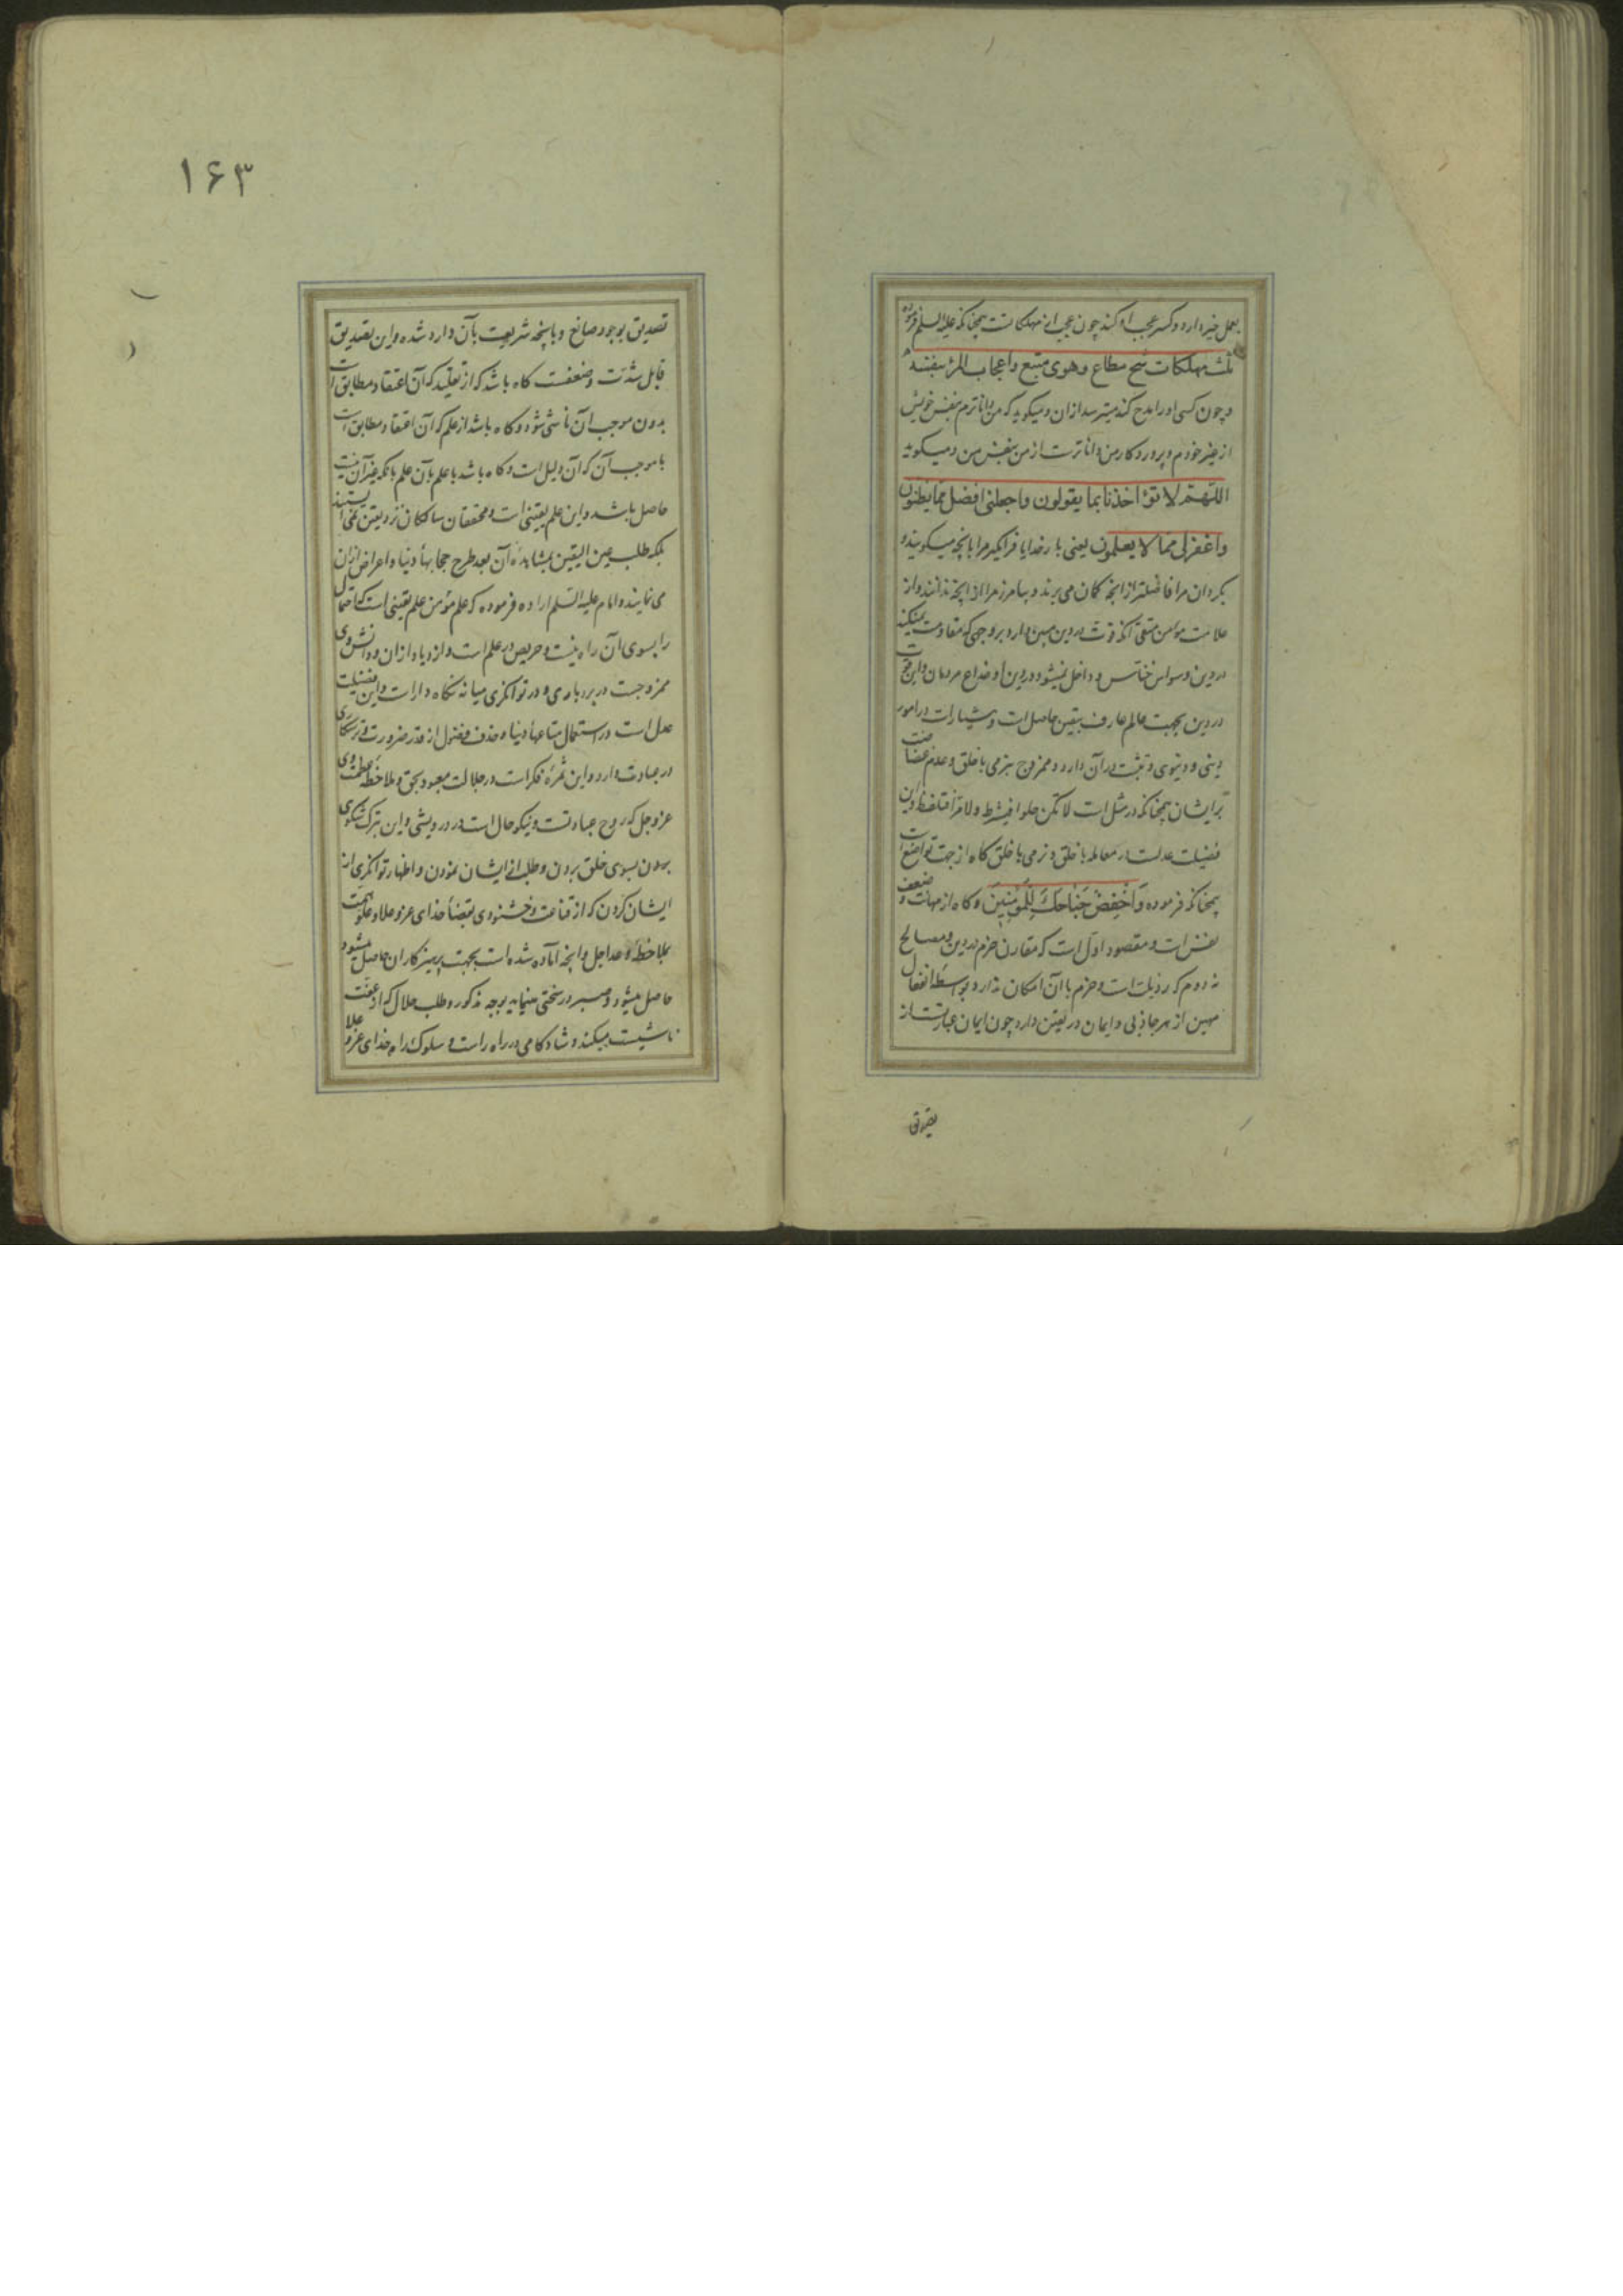 بعمل خیر دارد و کسر عجب او کند چون عجب از مهلکاتست همچنانکه علیه السلم فرموده
ثلث مهلکات شح مطاع وهوی متبع واعجاب المرء بنفسه
و چون کسی او را مدح کند میترسد ازان و میکوید که من داناترم بنفس خویش
از غیر خودم و پروردکار من داناترست از من بنفس من و میکوید
اللهم لا تؤاخذنا بما یقولون واجعلنی افضل مما یظنون
واغفرلی مما لا یعلمون یعنی بار خدایا فرا مکیر مرا بانچه میکویند و
بکردان مرا فاضلتر از انچه کمان می برند و بیامرز مرا از انچه ندانند و از
علامت مؤمن متقی آنکه قوت در دین مبین دارد بر وجهی که مقاومت میکند
در دین وسواس خناس و داخل نمیشود در دین او خداع مردمان و این قوت
در دین بجهت عالم عارف بیقین حاصل است و هشیارات در امور
دینی و دنیوی و تثبت در آن دارد و ممزوج بنرمی با خلق و عدم
بر ایشان همچنانکه در مثل است لا تکن حلوا فتسرط ولا مرا فتلفظ و این
فضیلت عدلست در معامله با خلق و نرمی با خلق کاه از جهت تواضع است
همچنانکه فرموده وَاخْفِضْ جَنَاحَكَ لِلْمُؤْمِنِينَ و کاه از مهانت و ضعف
نفس است و مقصود اول است که مقارن حزم در دین و مصالح
نه دوم که رذیلت است و حزم با آن امکان ندارد بواسطه انفعال
مهین از هر جاذبی و ایمان در یقین دارد چون ایمان عبارتست از
تصدیق بوجود صانع و بانچه شریعت بآن وارد شده و این تصدیق
قابل شدت و ضعفست کاه باشد که از تقلید که آن اعتقاد مطابق است
بدون موجب آن ناشی شود و کاه باشد از علم که آن اعتقاد مطابق است
با موجب آن که آن دلیل است و کاه باشد با علم بآن علم بانکه غیر آن نیست
حاصل باشد و این علم یقینی است و محققان سالکان نزد یقین نمی ایستند
بلکه طلب عین الیقین بمشاهده آن بعد طرح حجابهاء دنیا و اعراض ازان
می نمایند و امام علیه السلم اراده فرموده که علم مؤمن علم یقینی است که احتمال
را بسوی آن راه نیست و حریص در علم است و ازدیاد ازان و دانش وی
ممزوجست در بردباری و در توانکری میانه نکاه دارات و این فضیلت
عدل است در استعمال متاعهاء دنیا و حذف فضول از قدر ضرورت و ترسکاری
در عبادت دارد و این ثمره فکرات در جلالت معبود بحق و ملاحظه عظمت وی
عز و جل که روح عبادتست و نیکو حال است در درویشی و این بترک شکوی
بردن بسوی خلق بردن و طلب از ایشان نمودن و اظهار توانکری از
ایشان کردن که از قناعت و خشنودی بقضاء خدای عز و علا و علو همت
بملاحظه وعد اجل و انچه آماده شده است بجهت پرهیزکاران حاصل میشود
حاصل میشود و صبر در سختی مینماید بوجه مذکور و طلب حلال که از عفت
ناشیست میکند و شادکامی در راه راست و سلوک راه خدای عز و علا
۱۶۳